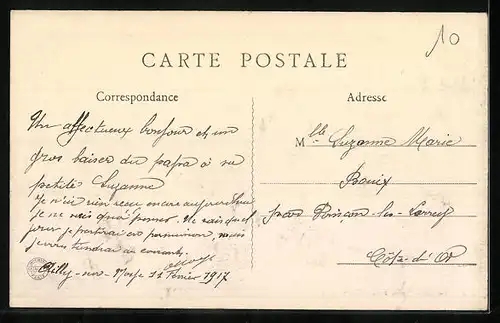 10
CARTE POSTALE
Correspondance
Adresse
Un affectueux bonjour et un
gros baiser du papa à sa
petite Suzanne
Je n'ai rien reçu encore aujourd'hui
je ne sais quoi penser. Ne sais quel
jour je partirai en permission, mais
je vous tiendrai au courant.
Ailly-sur-Noye 11 Février 1917
Mlle Suzanne Marie
Bouix
par Poinçon-les-Larrey
Côte-d'Or